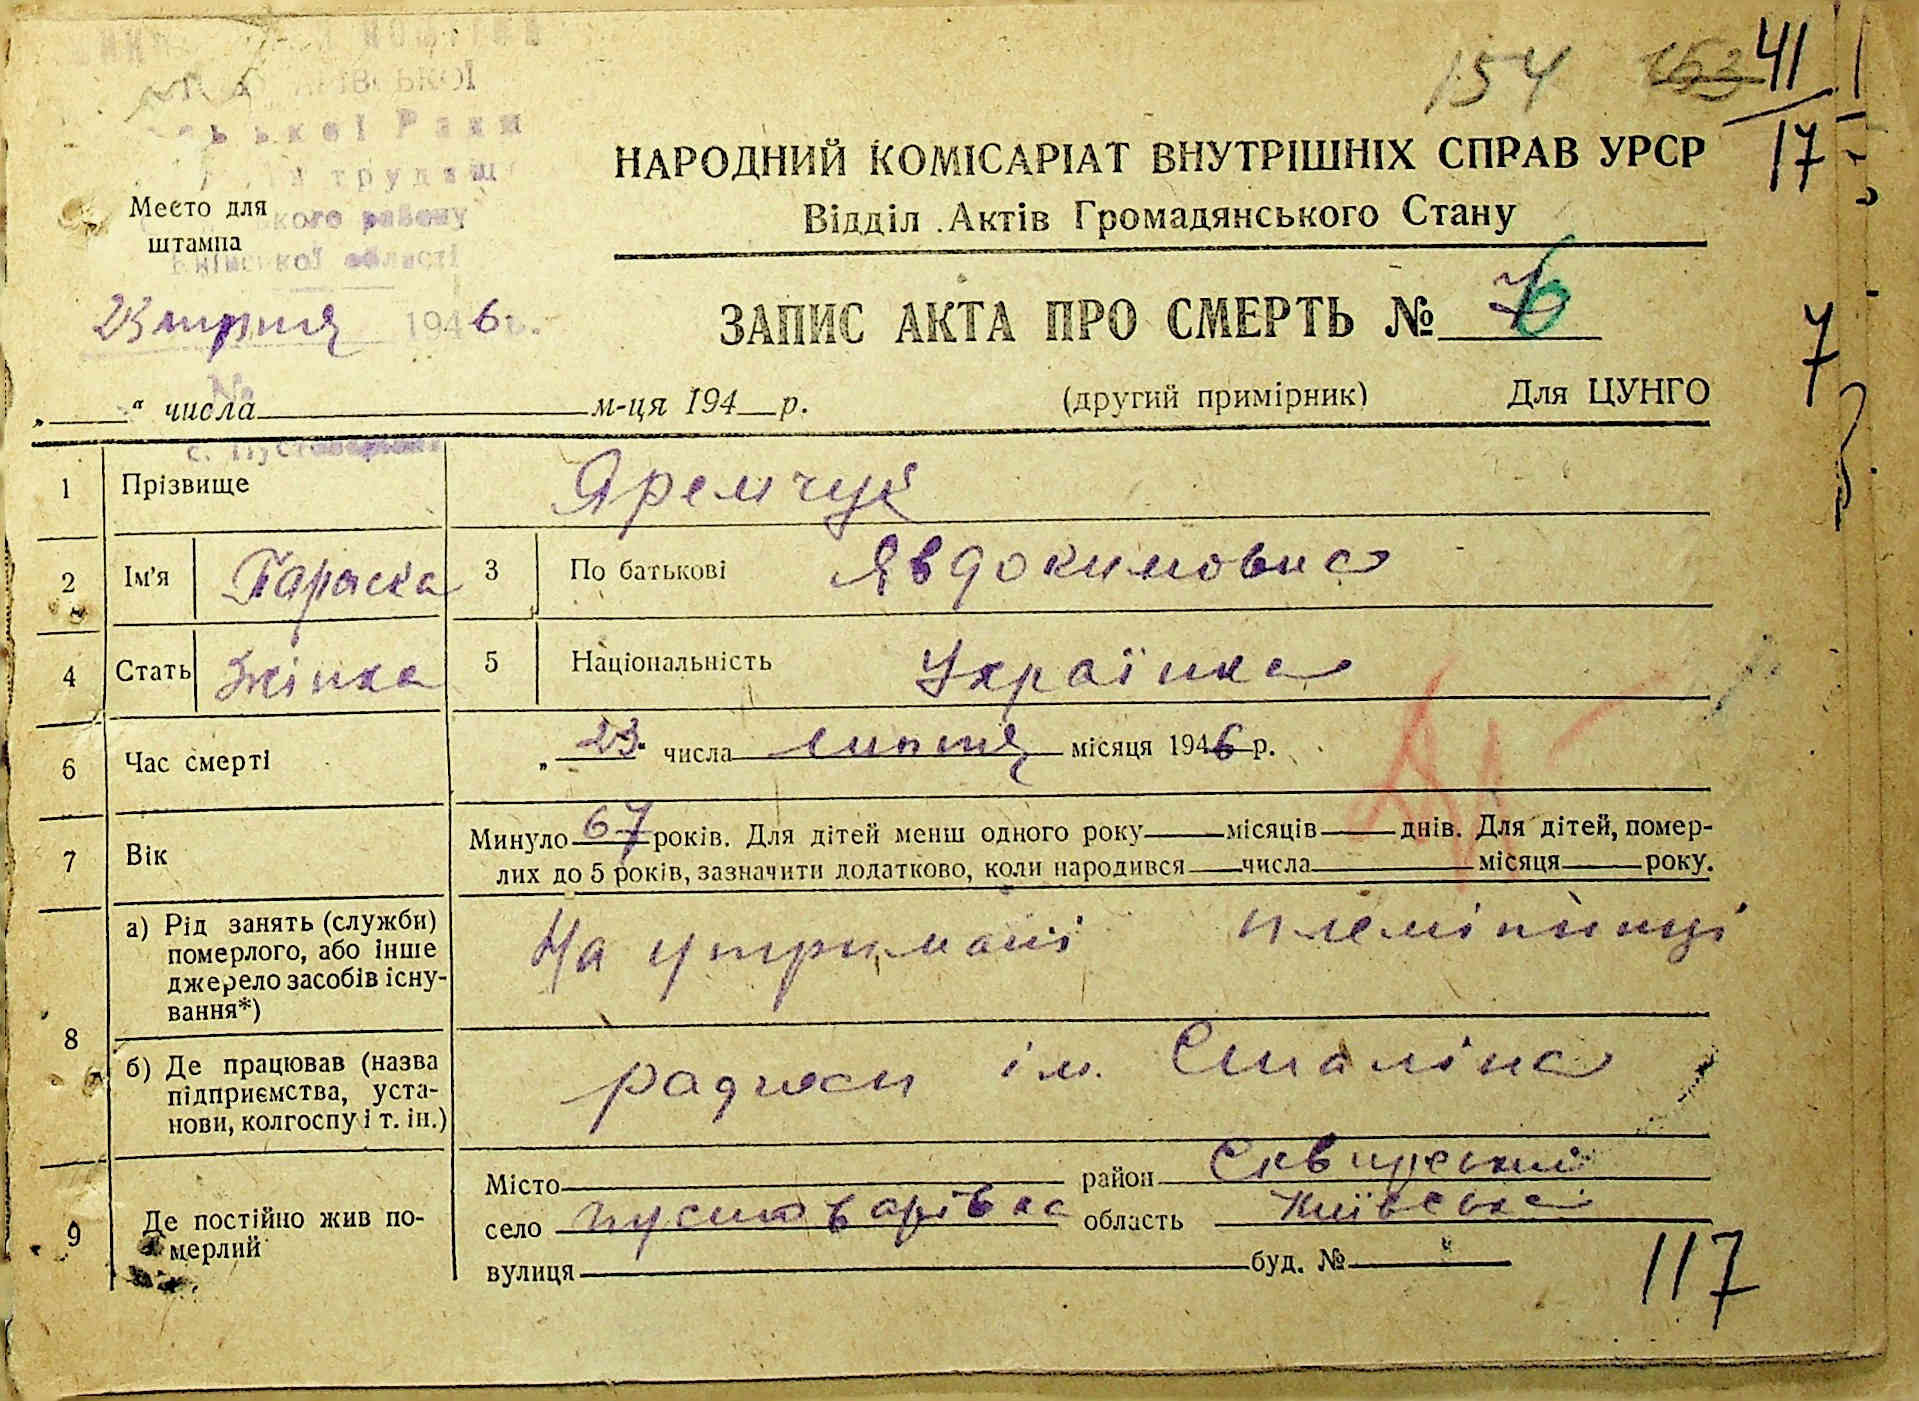 154 153 41
17
НАРОДНИЙ КОМІСАРІАТ ВНУТРІШНІХ СПРАВ УРСР
Відділ Актів Громадянського Стану
Место для
штампа
кого району
Київської області
23 липня 1946 р.
ЗАПИС АКТА ПРО СМЕРТЬ № 6
7
№
„ “ числа м-ця 194 р. (другий примірник) Для ЦУНГО
1 Прізвище Яремчук
2 Ім'я Параска 3 По батькові Явдокимовна
4 Стать Жінка 5 Національність Українка
6 Час смерті „ 23 числа липня місяця 1946 р.
7 Вік Минуло 67 років. Для дітей менш одного року місяців днів. Для дітей, помер-
лих до 5 років, зазначити додатково, коли народився числа місяця року.
8 а) Рід занять (служби)
померлого, або інше
джерело засобів існу-
вання*)
На утримані племіниці
б) Де працював (назва
підприємства, уста-
нови, колгоспу і т. ін.)
ім. Сталіна
9 Де постійно жив по-
мерлий
Місто район Сквирський
село пустварівка область Київська
вулиця буд. №
117